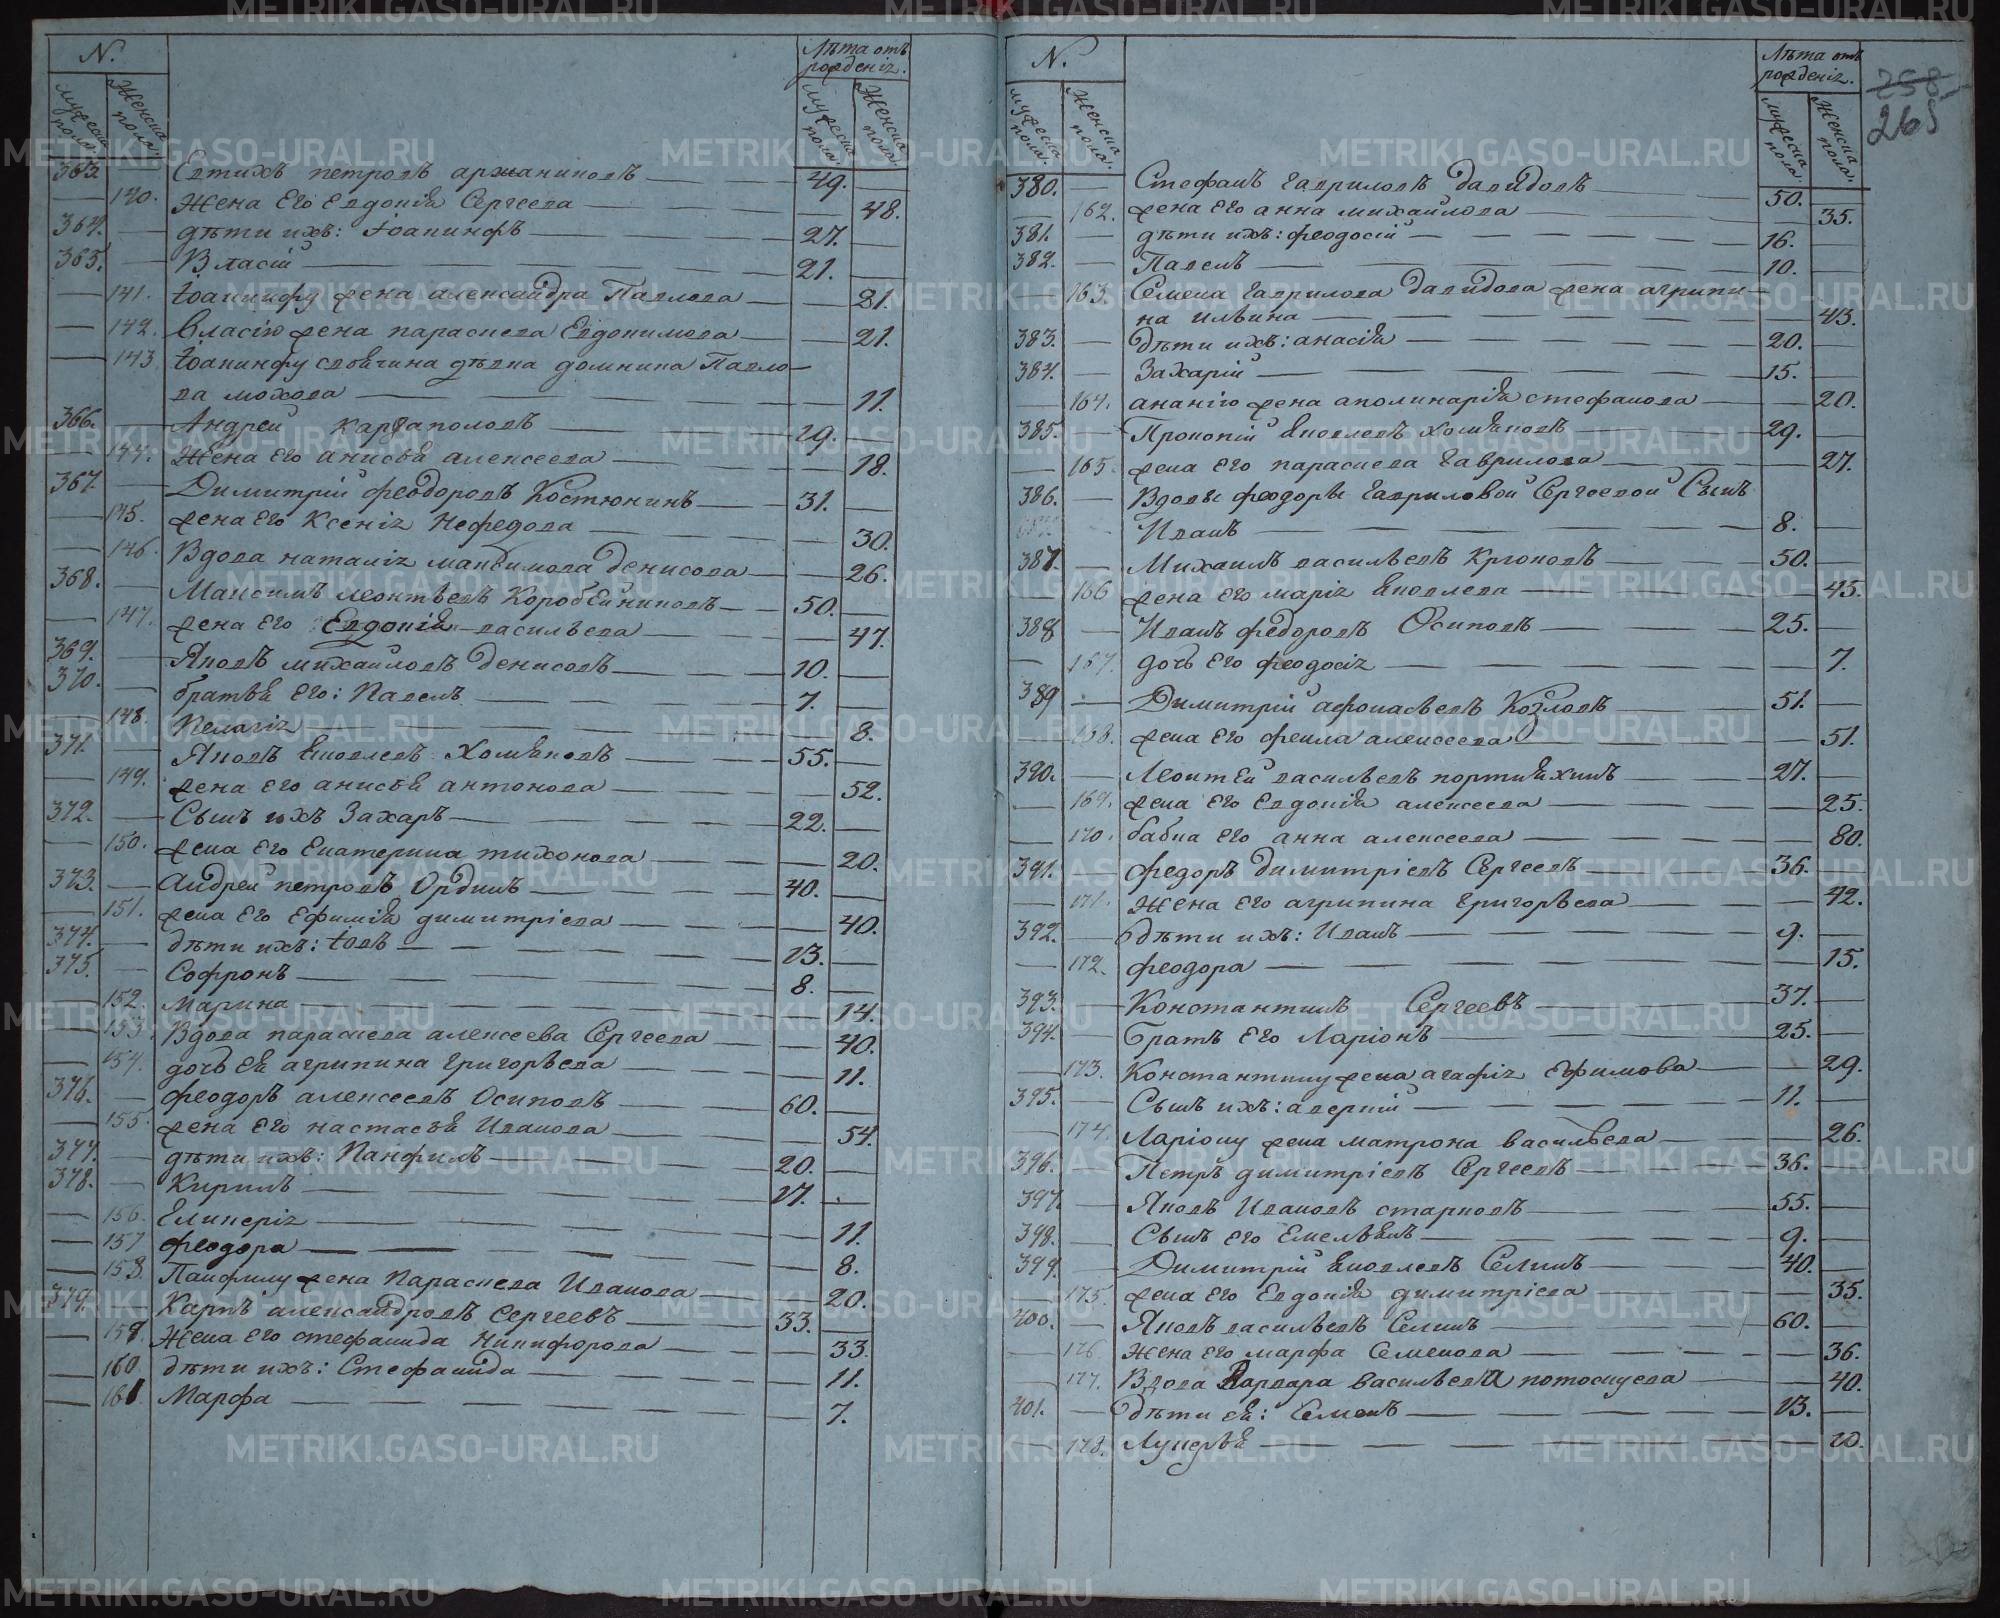 N.
Лѣта отъ рожденія.
Мужеска пола. Женска пола. Мужеска пола. Женска пола.
363. Евтихъ петровъ аржаниковъ 49.
140. Жена Его Евдокія Сергеева 48.
364. дѣти ихъ: Іоаникфъ 27.
365. Власій 21.
141. Іоаникфу жена александра Павлова 21.
142. Власію жена параскева Евдокимова 21.
143 Іоаникфу сводчина дѣвка домника Павло-
ва мохова 11.
366. Андрей Каргаполовъ 29.
144. Жена Его анисья алексеева 18.
367. Димитрій феодоровъ Костюнинъ 31.
145. жена Его Ксенія Нефедова 30.
146. Вдова наталія максимова денисова 26.
368. Максимъ леонтьевъ Коробейниковъ 50.
147. жена Его Евдокія васильева 47.
369. Яковъ михайловъ денисовъ 10.
370. братья Его: Павелъ 7.
148. Пелагія 8.
371. Яковъ яковлевъ Хомяковъ 55.
149. жена Его анисья антонова 52.
372. Сынъ ихъ Захаръ 22.
150. жена Его Екатерина тихонова 20.
373. Андрей петровъ Ординъ 40.
151. жена Его Ефимія димитріева 40.
374. дѣти ихъ: Іовъ 13.
375. Софронъ 8.
152. Марина 14.
153. Вдова параскева алексеева Сергеева 40.
154. дочь ея агрипина Григорьева 11.
376. феодоръ алексеевъ Осиповъ 60.
155. жена Его настасья Иванова 54.
377. дѣти ихъ: Панфилъ 20.
378. Кирилъ 17.
156. Гликерія 11.
157 феодора 8.
158. Панфилу жена Параскева Иванова 20.
379. Карпъ александровъ Сергеевъ 33.
159. Жена Его стефанида Никифорова 33.
160 дѣти ихъ: Стефанида 11.
161 Марфа 7.
N.
Лѣта отъ рожденія.
Мужеска пола. Женска пола. Мужеска пола. Женска пола.
258
265
380. Стефанъ гавриловъ давидовъ 50.
162. жена Его анна михайлова 35.
381. дѣти ихъ: феодосій 16.
382. Павелъ 10.
163. Семена гаврилова давидова жена агрипи-
на ильина 43.
383. дѣти ихъ: анасія 20.
384. Захарій 15.
164. ананію жена аполинарія стефанова 20.
385. Прокопій яковлевъ хомяковъ 29.
165. жена Его параскева гаврилова 27.
386. Вдовы феодоры гавриловой Сергеевой Сынъ
Иванъ 8.
387. Михаилъ васильевъ Крюковъ 50.
166 жена Его марія яковлева 45.
388 Иванъ федоровъ Осиповъ 25.
167. дочь Его феодосія 7.
389 Димитрій афонасьевъ Козловъ 51.
168. жена Его фекла алексеева 51.
390. Леонтей васильевъ портняхинъ 27.
169. жена Его Евдокія алексеева 25.
170. бабка Его анна алексеева 80.
391. федоръ димитріевъ Сергеевъ 36.
171. Жена Его агрипина Григорьева 42.
392. дѣти ихъ: Иванъ 9.
172. феодора 15.
393. Константинъ Сергеевъ 37.
394. Братъ Его Ларіонъ 25.
173. Константину жена агафія Ефимова 29.
395. Сынъ ихъ: аверкій 11.
174. Ларіону жена матрона васильева 26.
396. Петръ димитріевъ Сергеевъ 36.
397. Яковъ Ивановъ старковъ 55.
398. Сынъ Его Емельянъ 9.
399. Димитрій яковлевъ Селинъ 40.
175. жена Его Евдокія димитріева 35.
400. Яковъ васильевъ Селинъ 60.
176 жена Его марфа Семенова 36.
177. Вдова Варвара васильева потоскуева 40.
401. дѣти ея: Семенъ 13.
178. Лукерья 10.